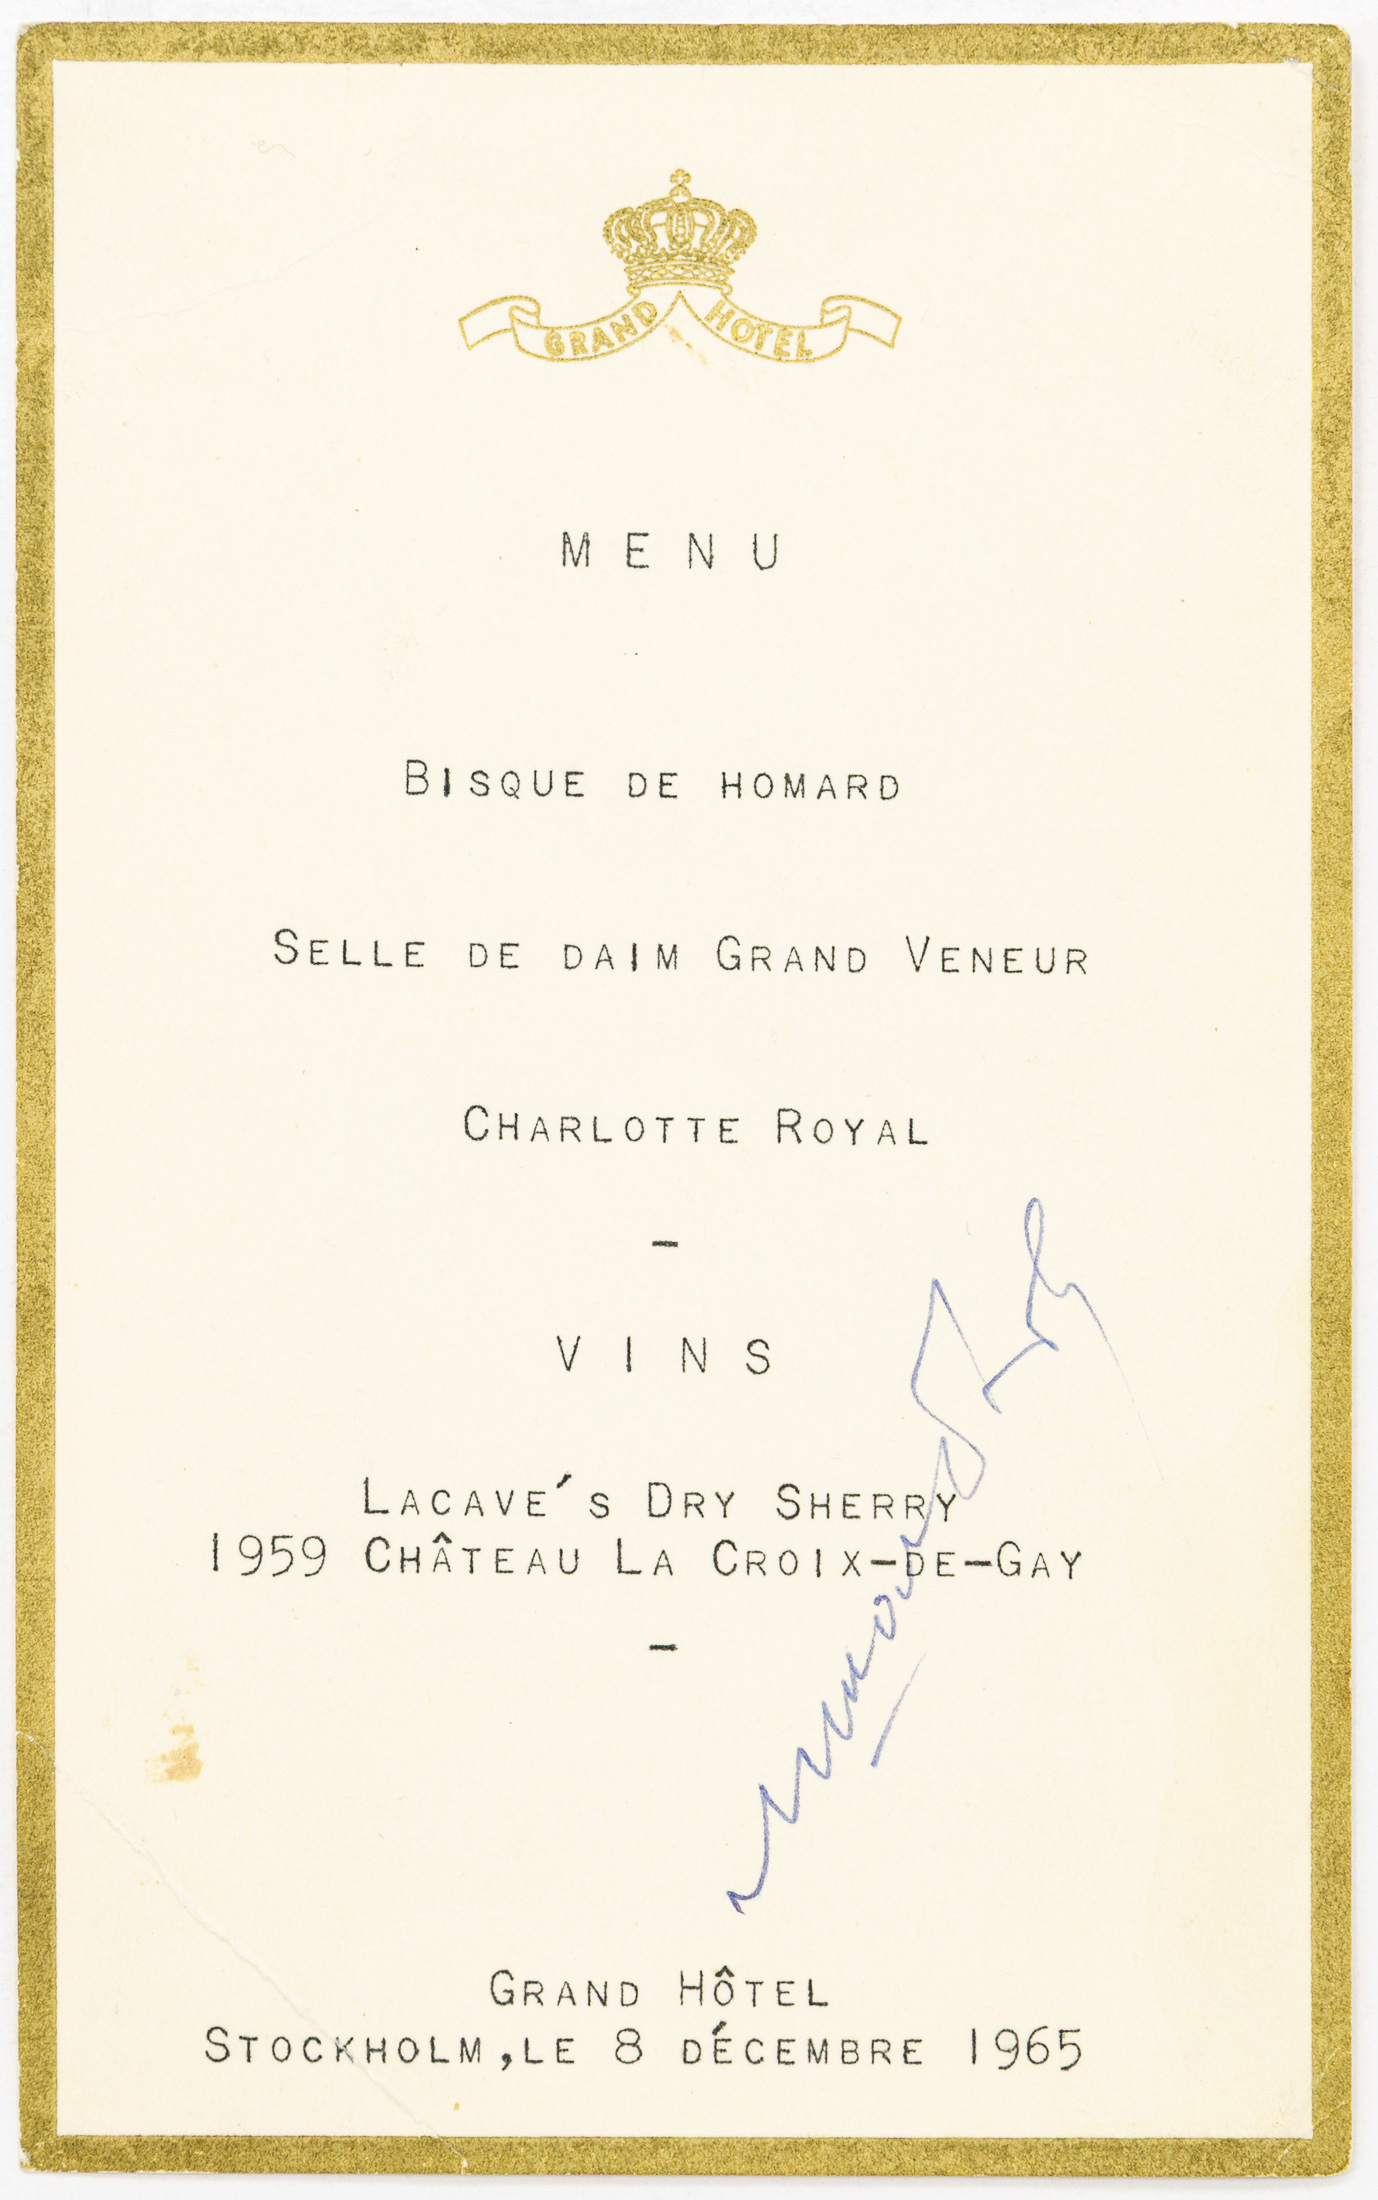 GRAND HOTEL
MENU
BISQUE DE HOMARD
SELLE DE DAIM GRAND VENEUR
CHARLOTTE ROYAL
-
VINS
LACAVE´S DRY SHERRY
1959 CHÂTEAU LA CROIX-DE-GAY
-
GRAND HÔTEL
STOCKHOLM,LE 8 DÉCEMBRE 1965